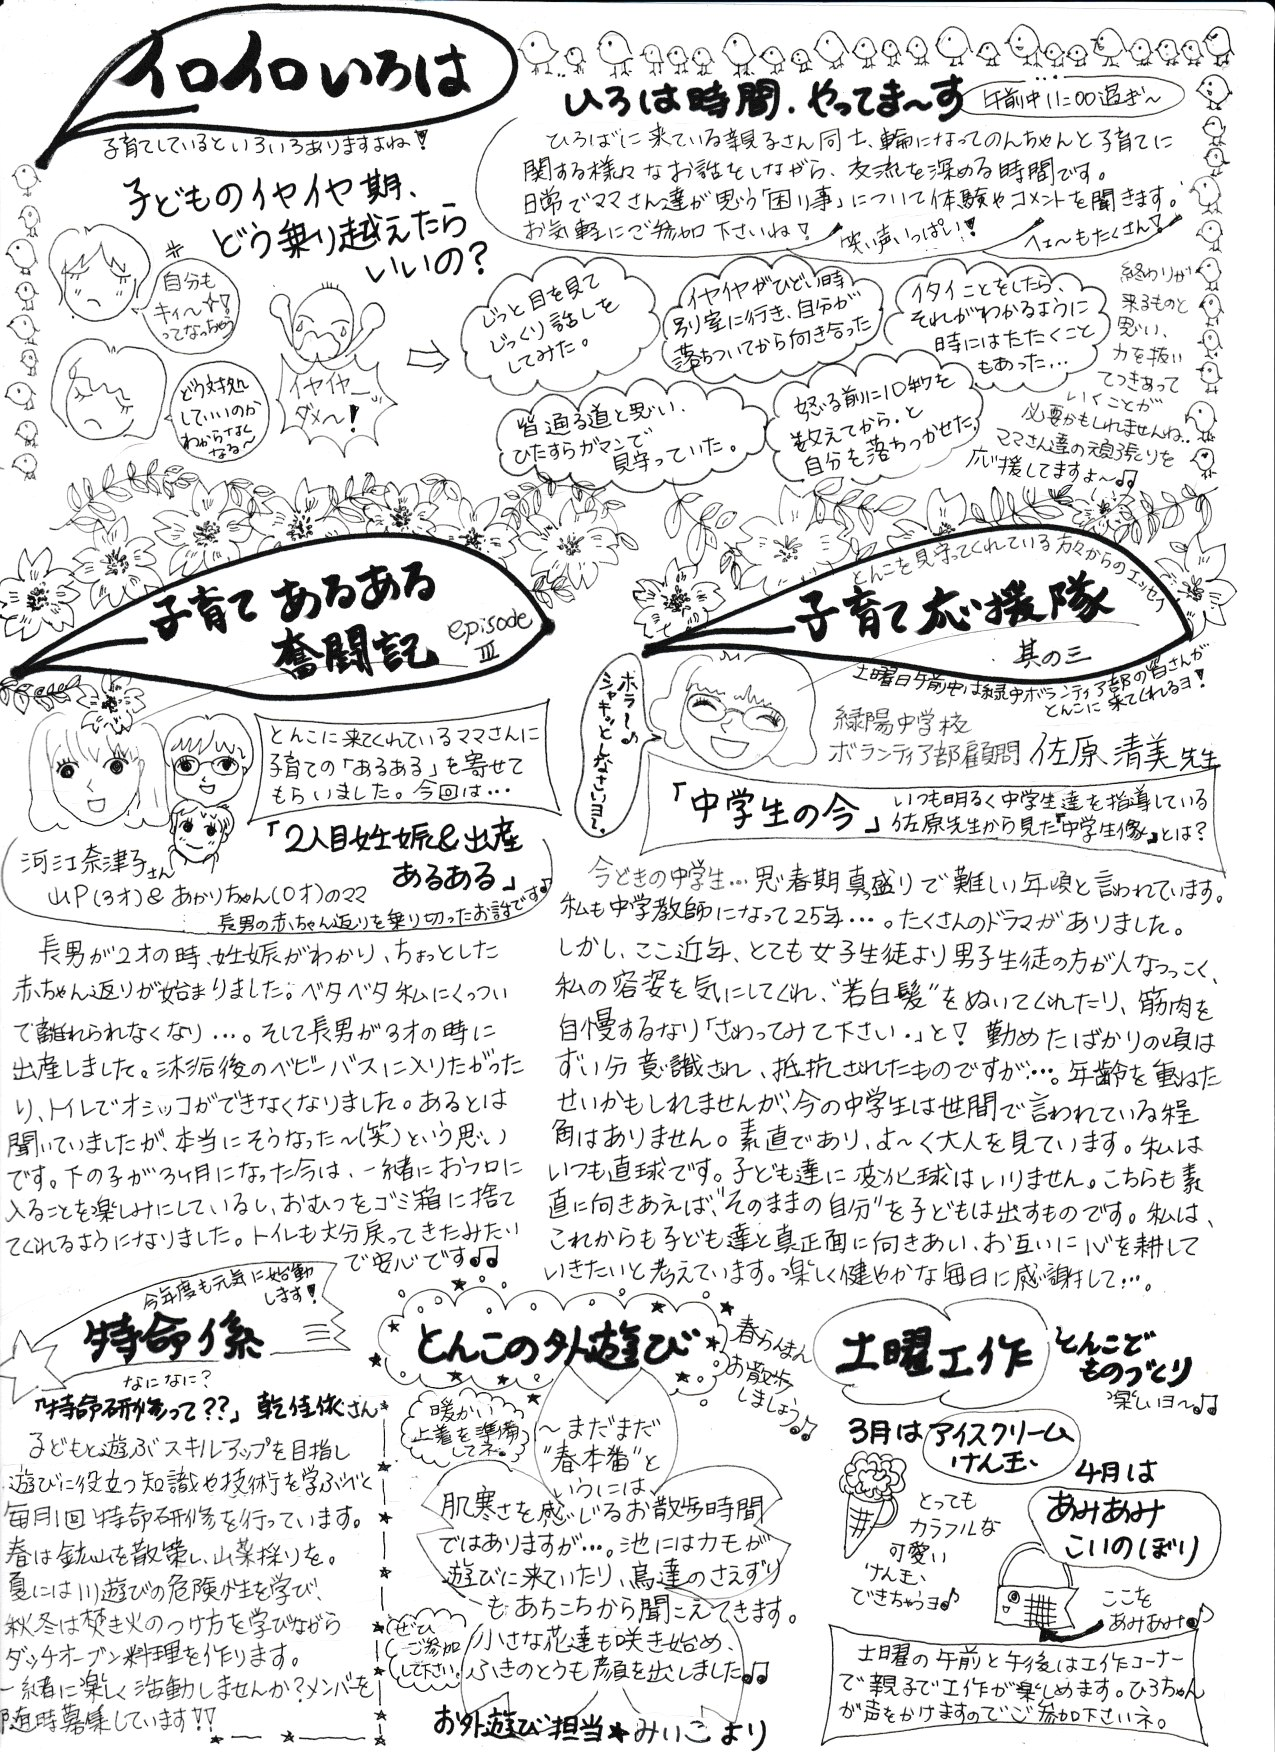 イロイロいろは
子育てしているといろいろありますよね!
子どものイヤイヤ期、
どう乗り越えたら
いいの?
自分も
キィ〜☆!
ってなっちゃう
どう対処
していいのか
わからなく
なる〜
イヤイヤー
ダメ〜!
ひろは時間、やってま〜す
午前中11:00過ぎ〜
ひろばに来ている親子さん同士、輪になってのんちゃんと子育てに
関する様々なお話をしながら、交流を深める時間です。
日常でママさん達が思う「困り事」について体験やコメントを聞きます。
お気軽にご参加下さいね!
笑い声いっぱい!!
へぇ〜もたくさん!
じっと目を見て
じっくり話しを
してみた。
イヤイヤがひどい時
別室に行き、自分が
落ちついてから向き合った
イタイことをしたら、
それがわかるように
時にはたたくこと
もあった...
皆通る道と思い、
ひたすらガマンで
見守っていた。
怒る前に10秒を
数えてから。と
自分も落ちつかせた。
終わりが
来るものと
思い、
力を抜い
てつきあって
いくことが
必要かもしれませんね..
ママさん達の頑張りを
応援してますよ〜♫
子育てあるある
奮闘記
episode
III
とんこに来てくれているママさんに
子育ての「あるある」を寄せて
もらいました。今回は...
「2人目妊娠&出産
あるある」
河江奈津子さん
山P(3才)&あかりちゃん(0才)のママ
長男の赤ちゃん返りを乗り切ったお話です♪
長男が2才の時、妊娠がわかり、ちょっとした
赤ちゃん返りが始まりました。ベタベタ私にくっつい
て離れられなくなり...。そして長男が3才の時に
出産しました。沐浴後のベビーバスに入りたがった
り、トイレでオシッコができなくなりました。あるとは
聞いていましたが、本当にそうなった〜(笑)という思い
です。下の子が3ヶ月になった今は、一緒におフロに
入ることを楽しみにしているし、おむつをゴミ箱に捨て
てくれるようになりました。トイレも大分戻ってきたみたい
で安心です♫
とんこを見守ってくれている方々からのエッセイ
子育て応援隊
其の三
土曜日午前中は緑中ボランティア部の皆さんが
とんこに来てくれるヨ!
ホラ〜♪
シャキッとしなさいヨ〜。
緑陽中学校
ボランティア部顧問 佐原清美先生
「中学生の今」
いつも明るく中学生達を指導している
佐原先生から見た『中学生像』とは?
今どきの中学生...思春期真っ盛りで難しい年頃と言われています。
私も中学教師になって25年...。たくさんのドラマがありました。
しかし、ここ近年、とても女子生徒より男子生徒の方が人なつっこく、
私の容姿を気にしてくれ、“若白髪”をぬいてくれたり、筋肉を
自慢するなり「さわってみて下さい。」と! 勤めたばかりの頃は
ずい分意識され、抵抗されたものですが...。年齢を重ねた
せいかもしれませんが、今の中学生は世間で言われている程
角はありません。素直であり、よ〜く大人を見ています。私は
いつも直球です。子ども達に変化球はいりません。こちらも素
直に向きあえば、“そのままの自分”を子どもは出すものです。私は、
これからも子ども達と真正面に向きあい、お互いに心を耕して
いきたいと考えています。楽しく健やかな毎日に感謝して...。
今年度も元気に始動
します!
特命係
なになに?
「特命研修って??」乾佳依さん
子どもと遊ぶスキルアップを目指し
遊びに役立つ知識や技術を学ぶべく
毎月1回特命研修を行っています。
春は鉱山を散策し、山菜採りを。
夏には川遊びの危険性を学び、
秋冬は焚き火のつけ方を学びながら
ダッチオーブン料理を作ります。
一緒に楽しく活動しませんか?メンバーを
随時募集しています!!
とんこの外遊び
春らんまん
お散歩
しましょう♫
暖かい
上着を準備
してネ。
〜まだまだ
“春本番”と
いうには
肌寒さを感じるお散歩時間
ではありますが...。池にはカモが
遊びに来ていたり、鳥達のさえずり
もあちこちから聞こえてきます。
小さな花達も咲き始め、
ふきのとうも顔を出しました♫
ぜひ
ご参加
して下さい。
お外遊び担当★みいこより
土曜工作
とんこで
ものづくり
楽しいヨ〜♫
3月は
アイスクリーム
けん玉、
とっても
カラフルな
可愛い
けん玉、
できちゃうヨ♪
4月は
あみあみ
こいのぼり
ここを
あみあみ♪
土曜の午前と午後は工作コーナー
で親子で工作が楽しめます。ひろちゃん
が声をかけますのでご参加下さいネ。